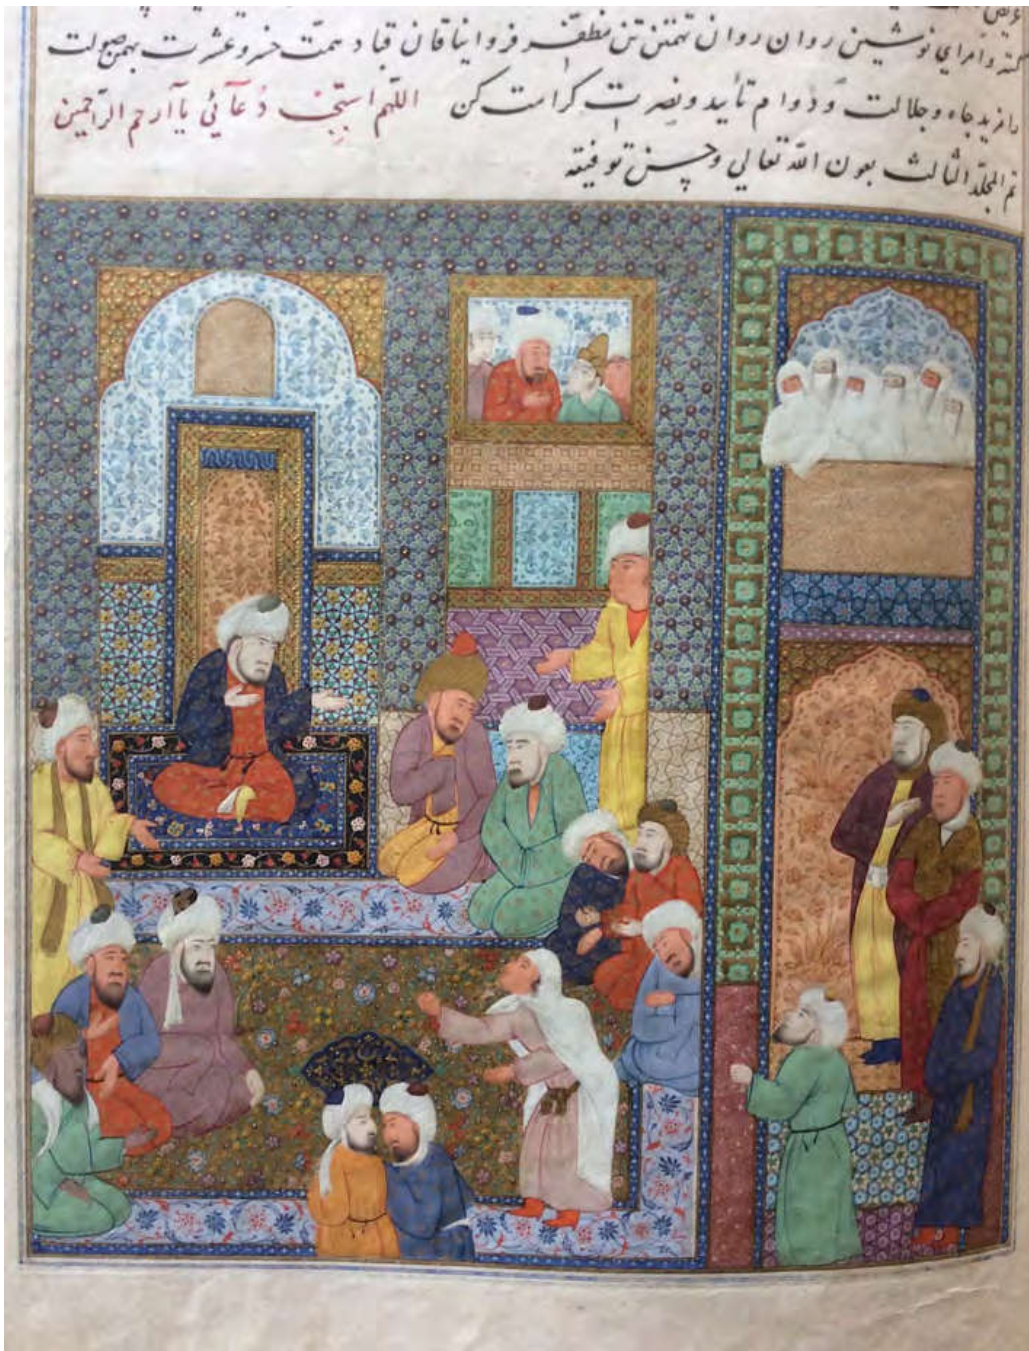 عریض
گستر و امرای نوشین روان روان تهمتن تن مظفر فر و ایناقان قباد همت خسرو عشرت بهمن صولت
را مزید جاه و جلالت و دوام تأیید و نصرت کرامت کن اللهم استجب دعائی یا ارحم الراحمین
تم المجلد الثالث بعون الله تعالی و حسن توفیقه